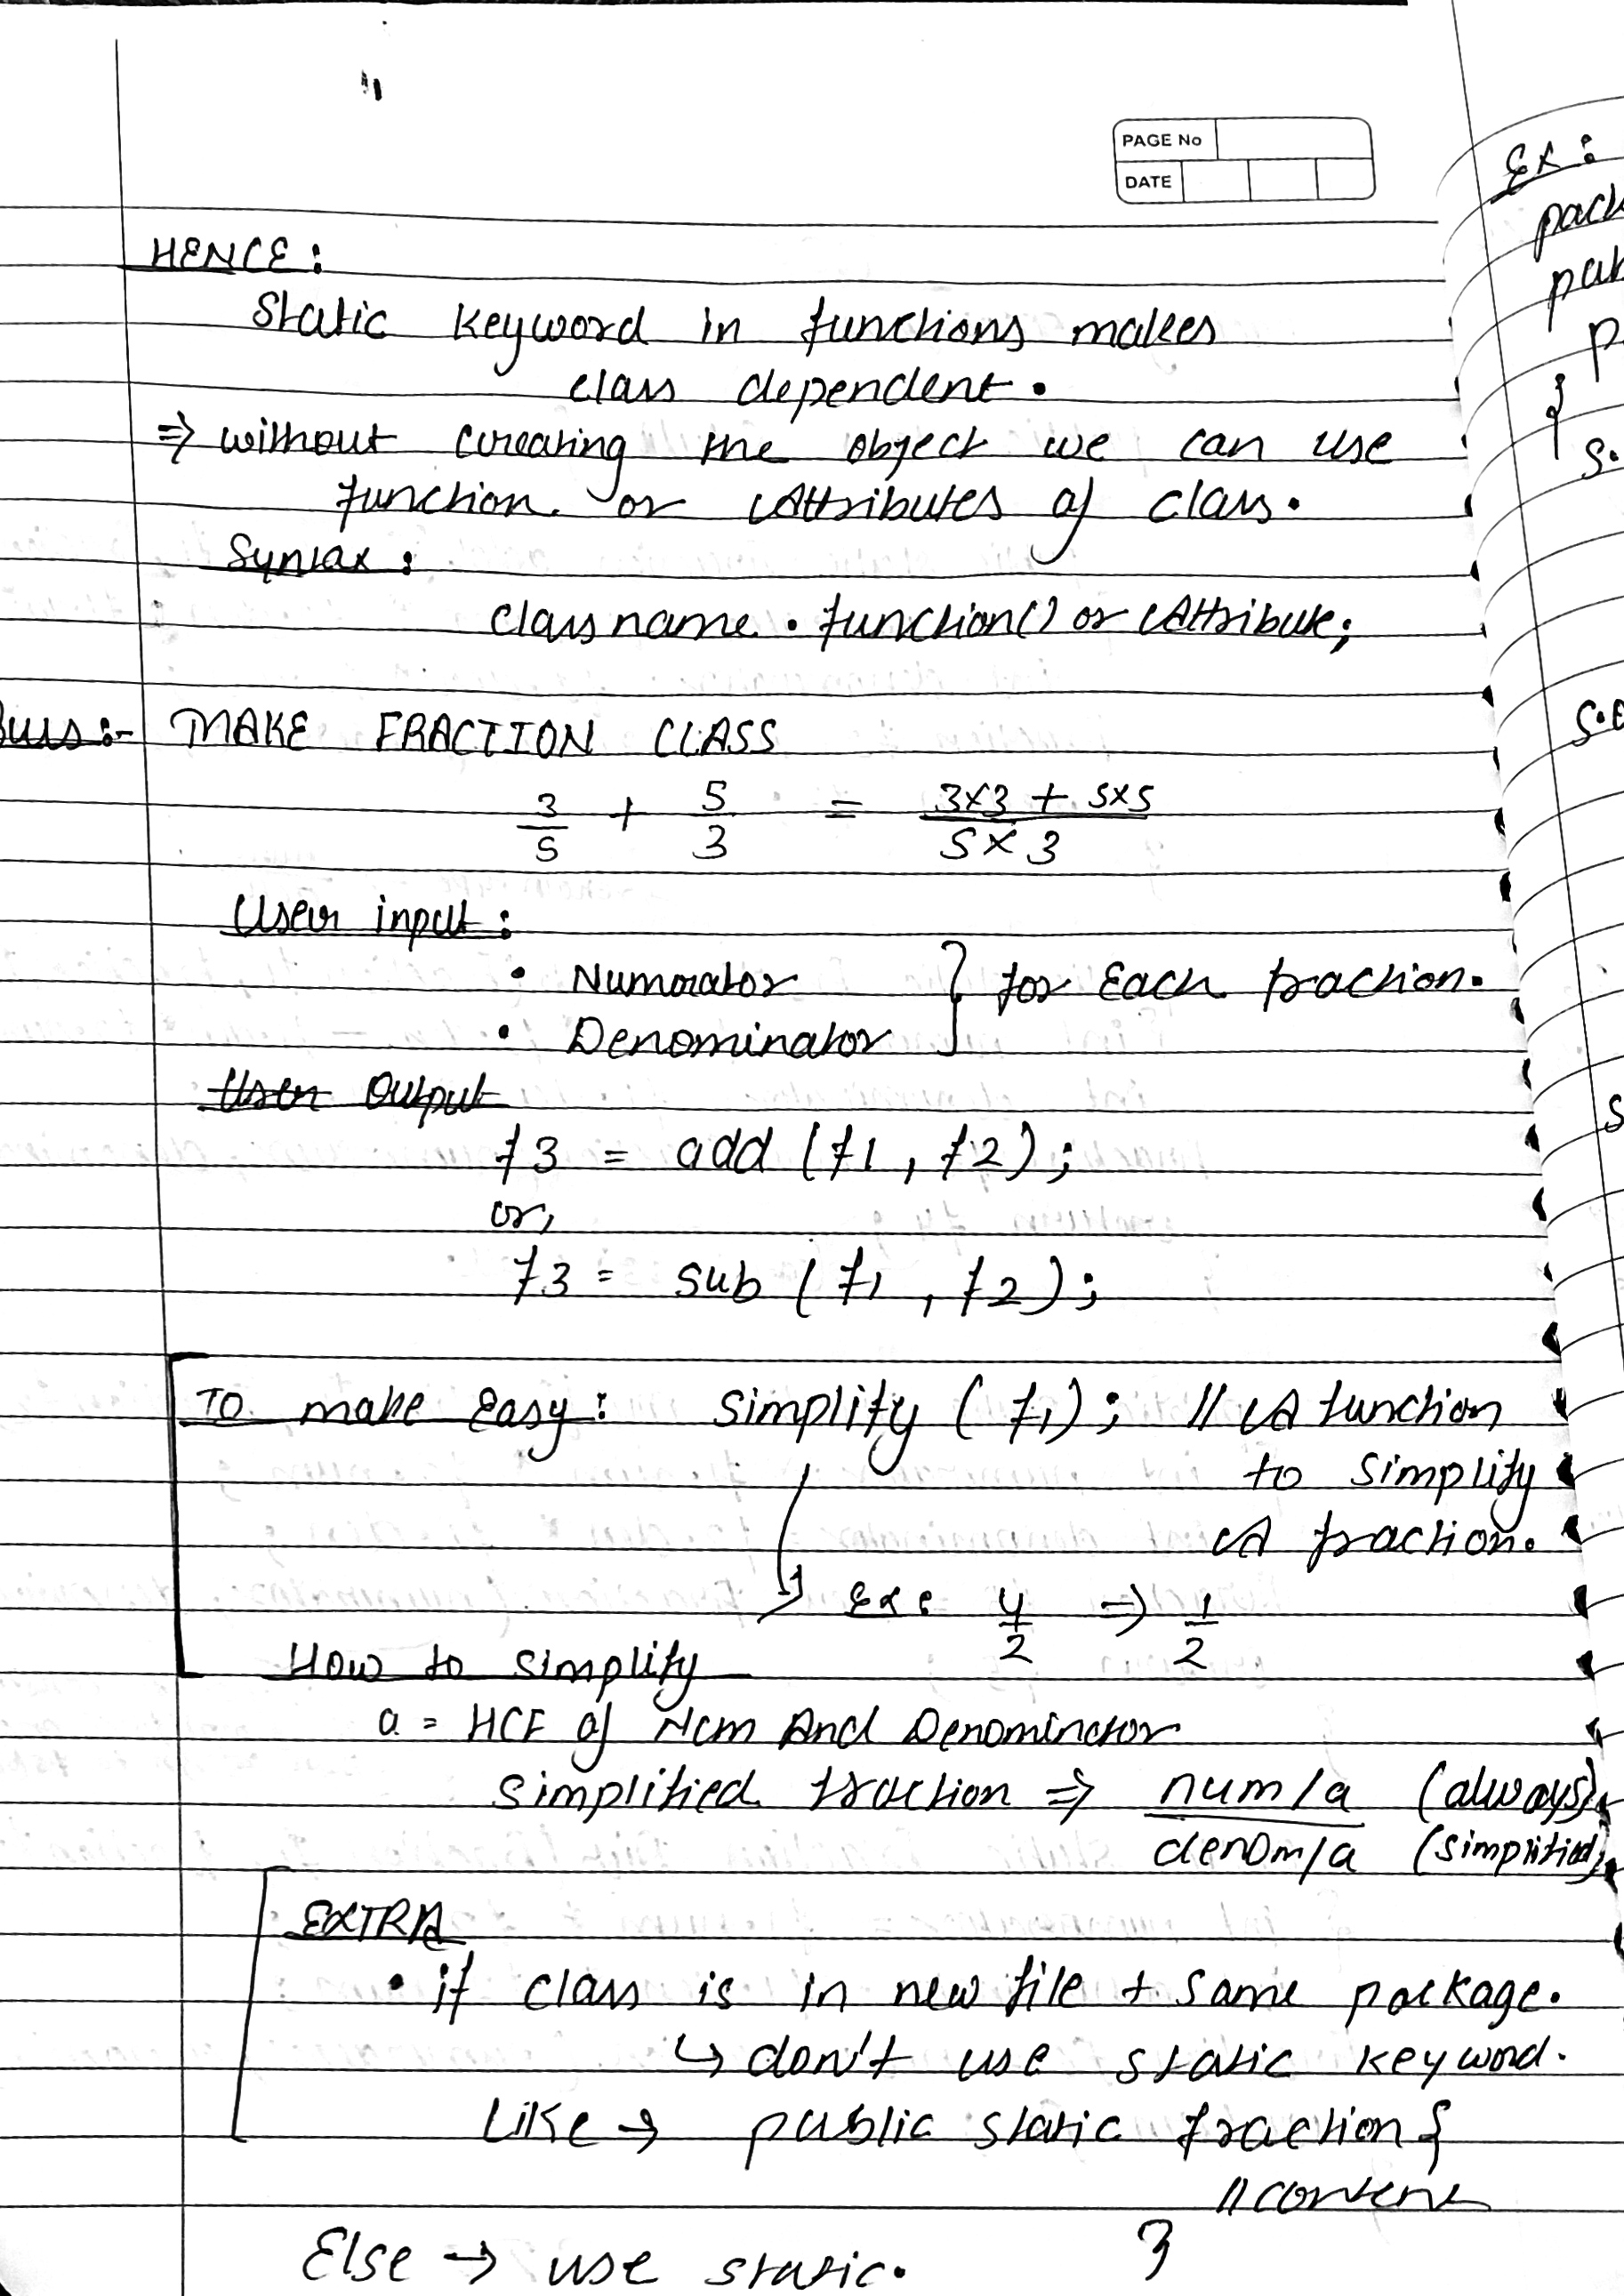 PAGE No
DATE
HENCE:
Static keyword in functions makes
class dependent.
=> without creating the object we can use
function or Attributes of class.
Syntax:
Classname.function() or Attribute;
MAKE FRACTION CLASS
3/5 + 5/3 = 3×3 + 5×5 / 5×3
User input:
• Numerator
• Denominator } for Each fraction.
User Output
f3 = add (f1, f2);
or,
f3 = sub (f1, f2);
To make Easy: simplify (f1); // A function
to simplify
A fraction.
Ex: 4/2 => 1/2
How to simplify
a = HCF of Num And Denominator
simplified fraction => num/a (always)
denom/a (simplified)
EXTRA
• if class is in new file + same package.
↳ don't use static keyword.
Like → public static fraction {
// content
}
Else → use static.
Ex: